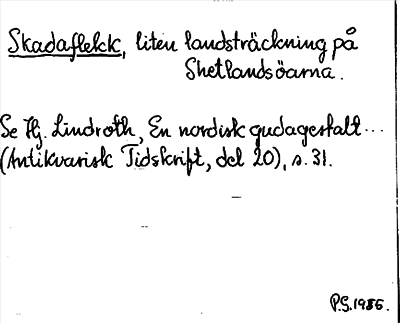 Skadaflekk, liten landsträckning på
Shetlandsöarna.
Se Hj. Lindroth, En nordisk gudagestalt...
(Antikvarisk Tidskrift, del 20), s. 31.
P.S. 1986.